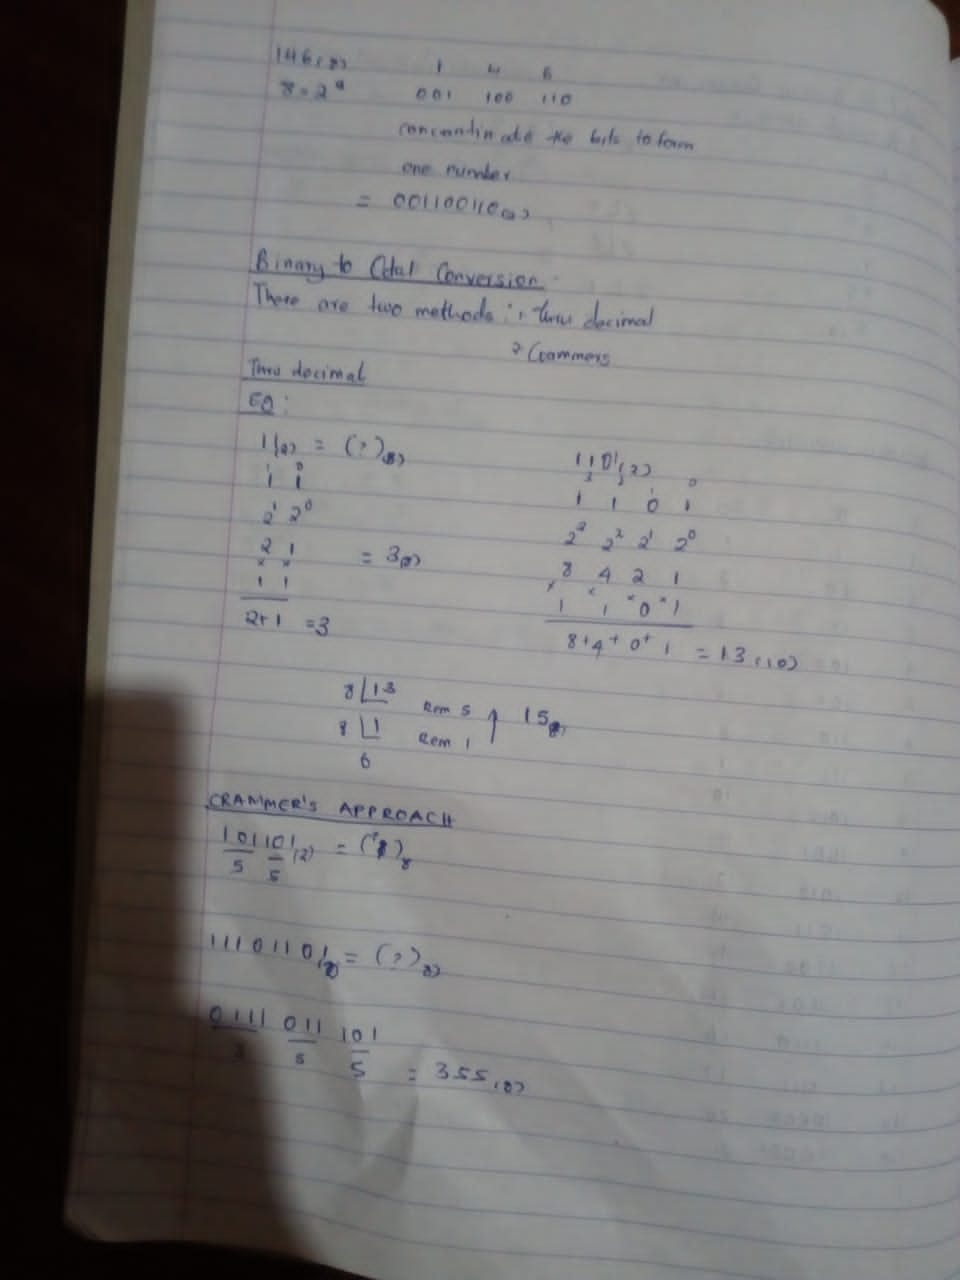 146(8) 1 4 6
8 = 2^3 001 100 110
the bits to form
one number
= 001100110(2)
Binary to Octal Conversion
There are two methods: 1 thru decimal
2 Crammers
Thru decimal
EQ:
11(2) = (?)(8)
1 1
2^1 2^0
2 1 = 3(8)
x x
1 1
2+1 = 3
1101(2)
3 2 1 0
1 1 0 1
2^3 2^2 2^1 2^0
8 4 2 1
x x x x
1 1 0 1
8+4+0+1 = 13(10)
8 13 Rem 5 15(8)
8 1 Rem 1
0
CRAMMER'S APPROACH
101101(2) = (?)8
5 5
11101101(2) = (?)(8)
0111 011 101
3 5 5
= 355(8)